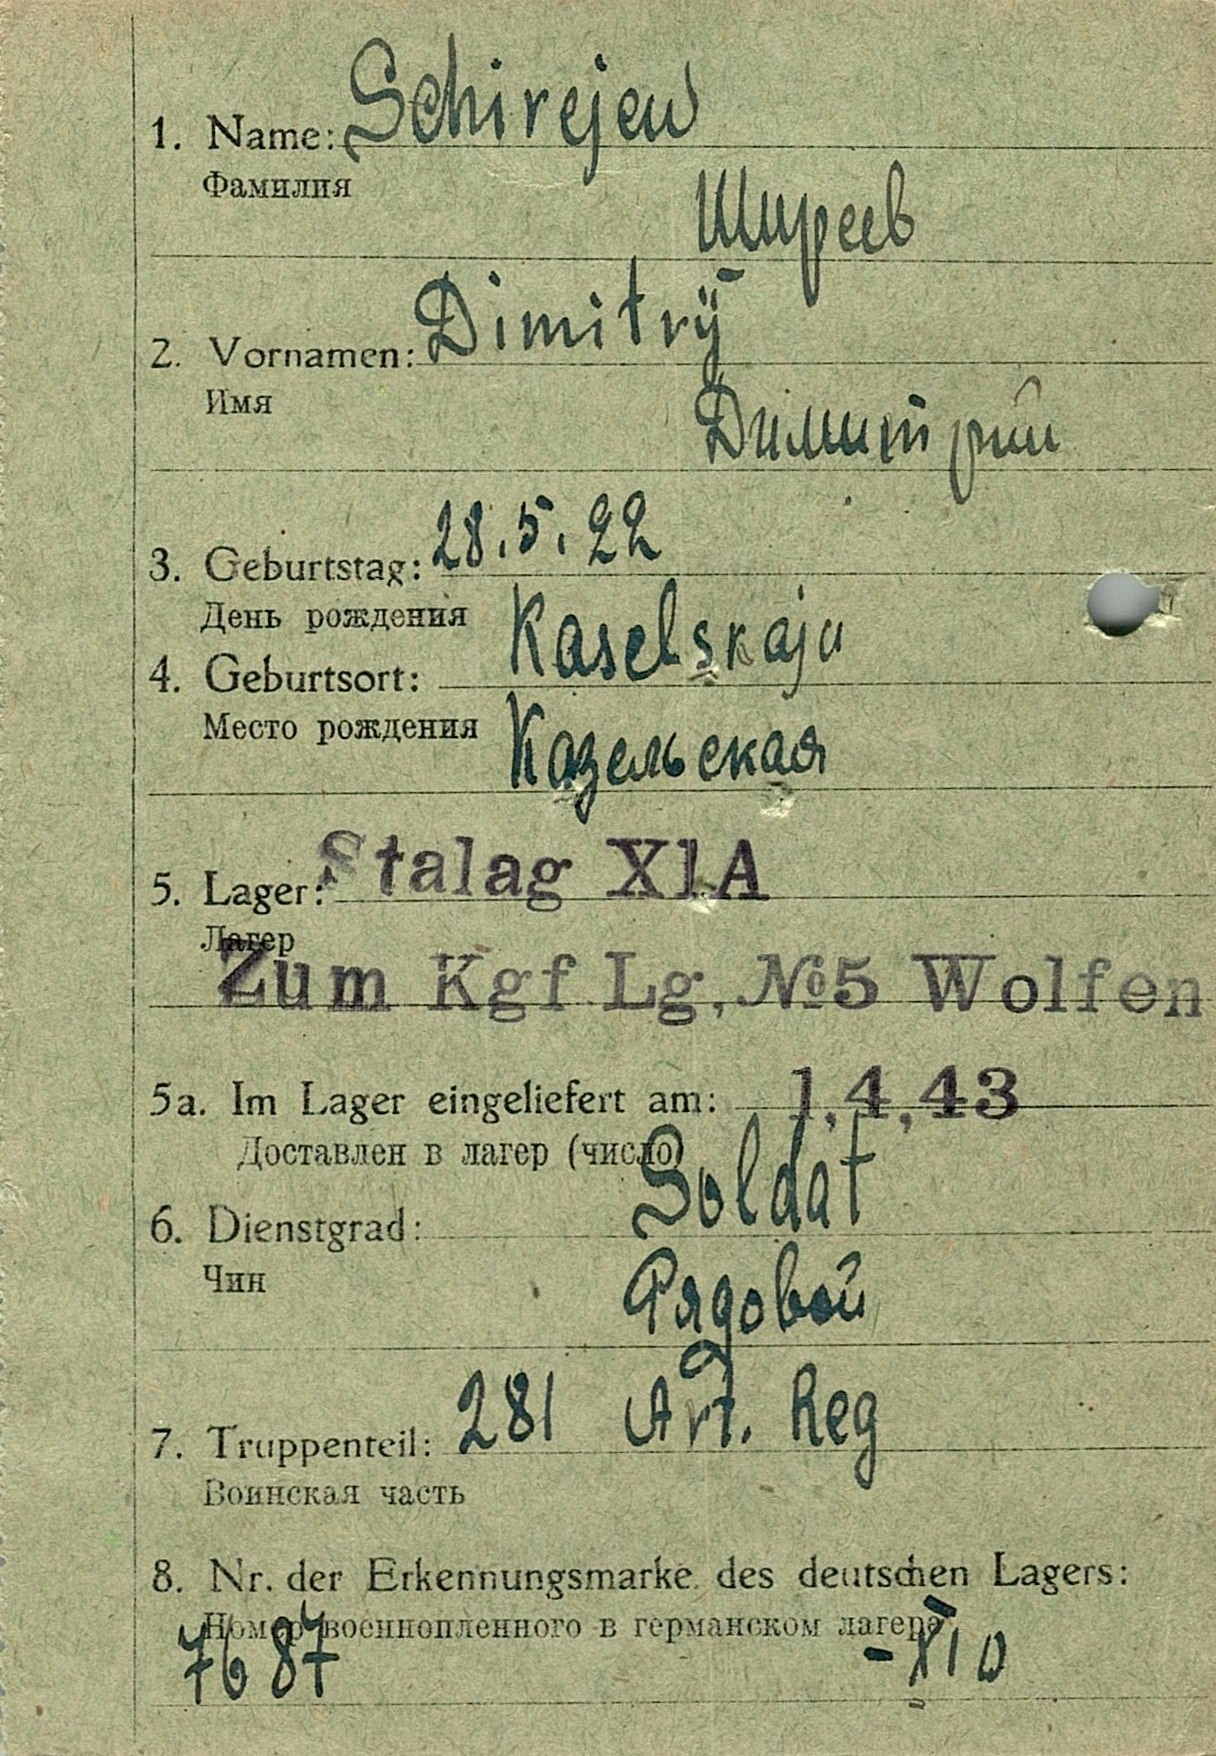 1. Name: Schirejew
Фамилия
Ширеев
2. Vornamen: Dimitrÿ
Имя
Димитрий
28.5.22
3. Geburtstag:
День рождения
Kaselskaja
4. Geburtsort:
Место рождения
Казельская
5. Lager: Stalag X1A
Лагер
Zum Kgf Lg, №5 Wolfen
5a. Im Lager eingeliefert am: 1,4,43
Доставлен в лагер (число)
6. Dienstgrad: Soldat
Чин
Рядовой
7. Truppenteil: 281 Art. Reg
Воинская часть
8. Nr. der Erkennungsmarke des deutschen Lagers:
Номер военнопленного в германском лагере
7687 - XI